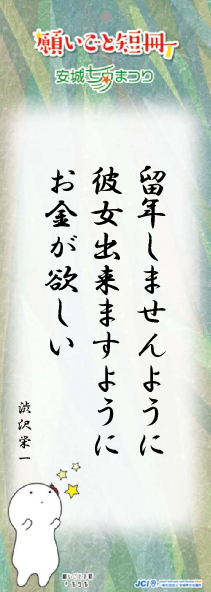 願いごと短冊
安城七夕まつり
留年しませんように
彼女出来ますように
お金が欲しい
渋沢栄一
JCI